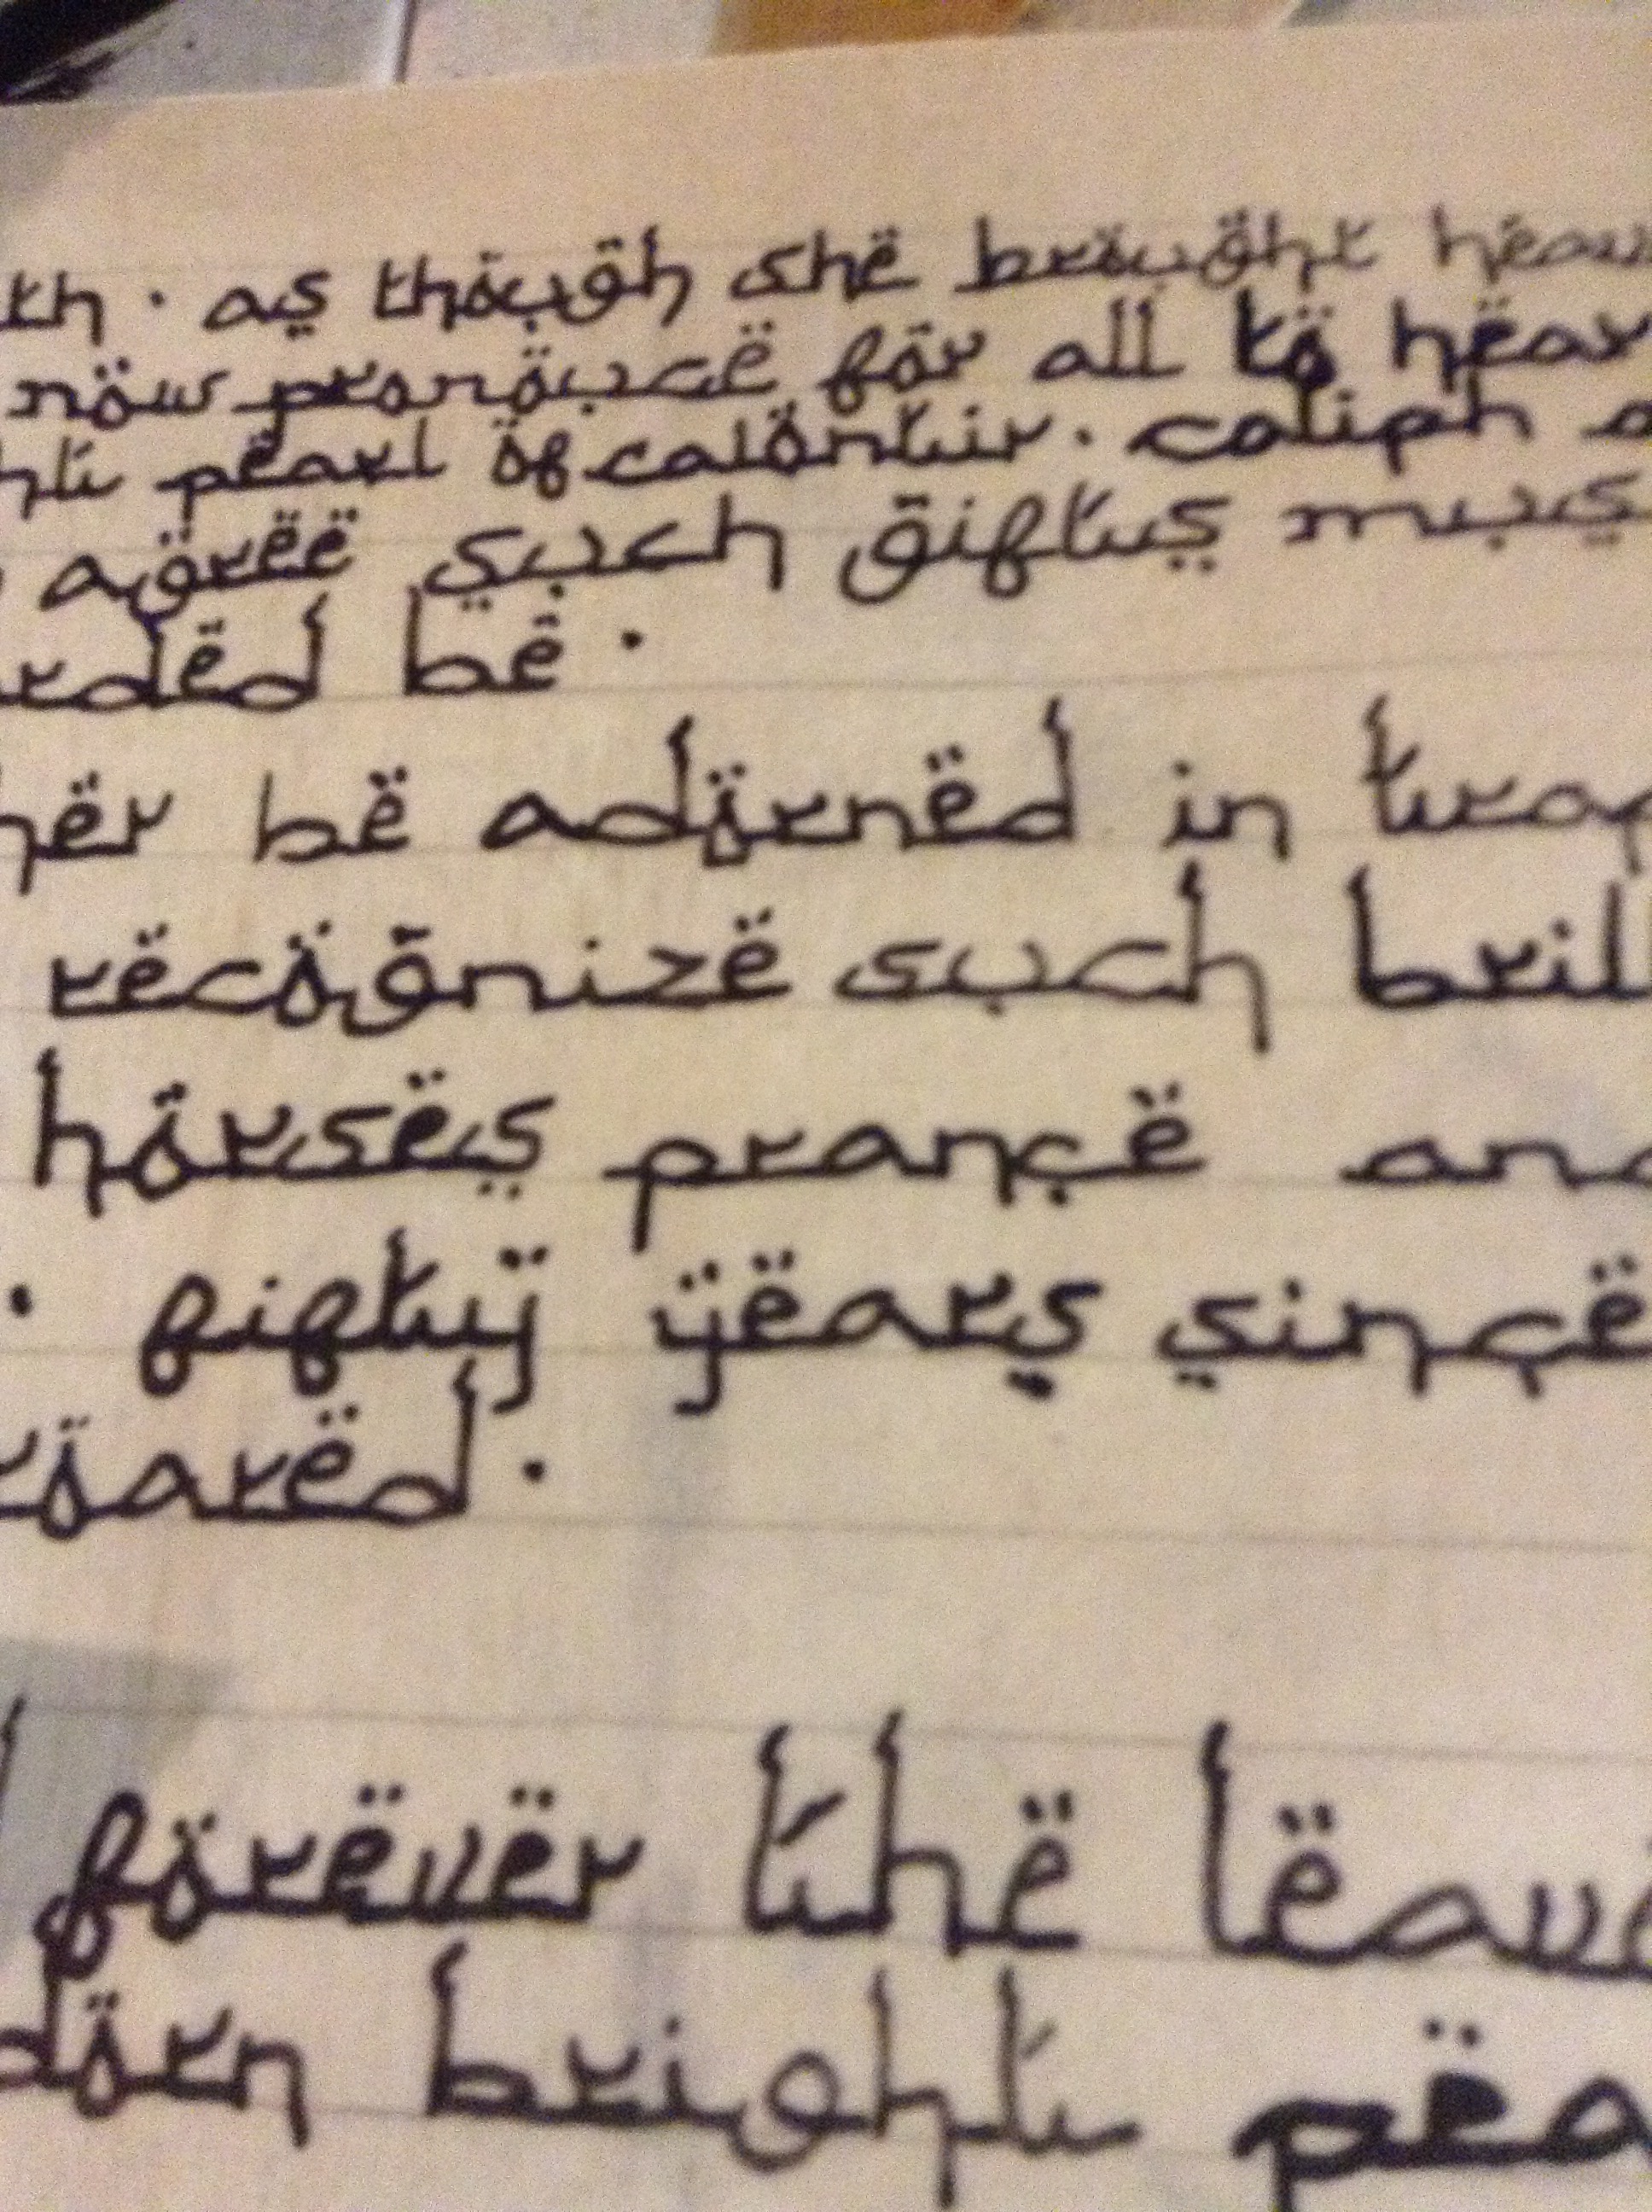 th. as though she brought heav
now pronouce for all to hear
ht pearl of calontir. caliph a
agree such gifts mus
rded be.
her be adorned in trap
recognize such bril
horses prance and
. fifty years since
roared.
forever the leave
dorn bright pea